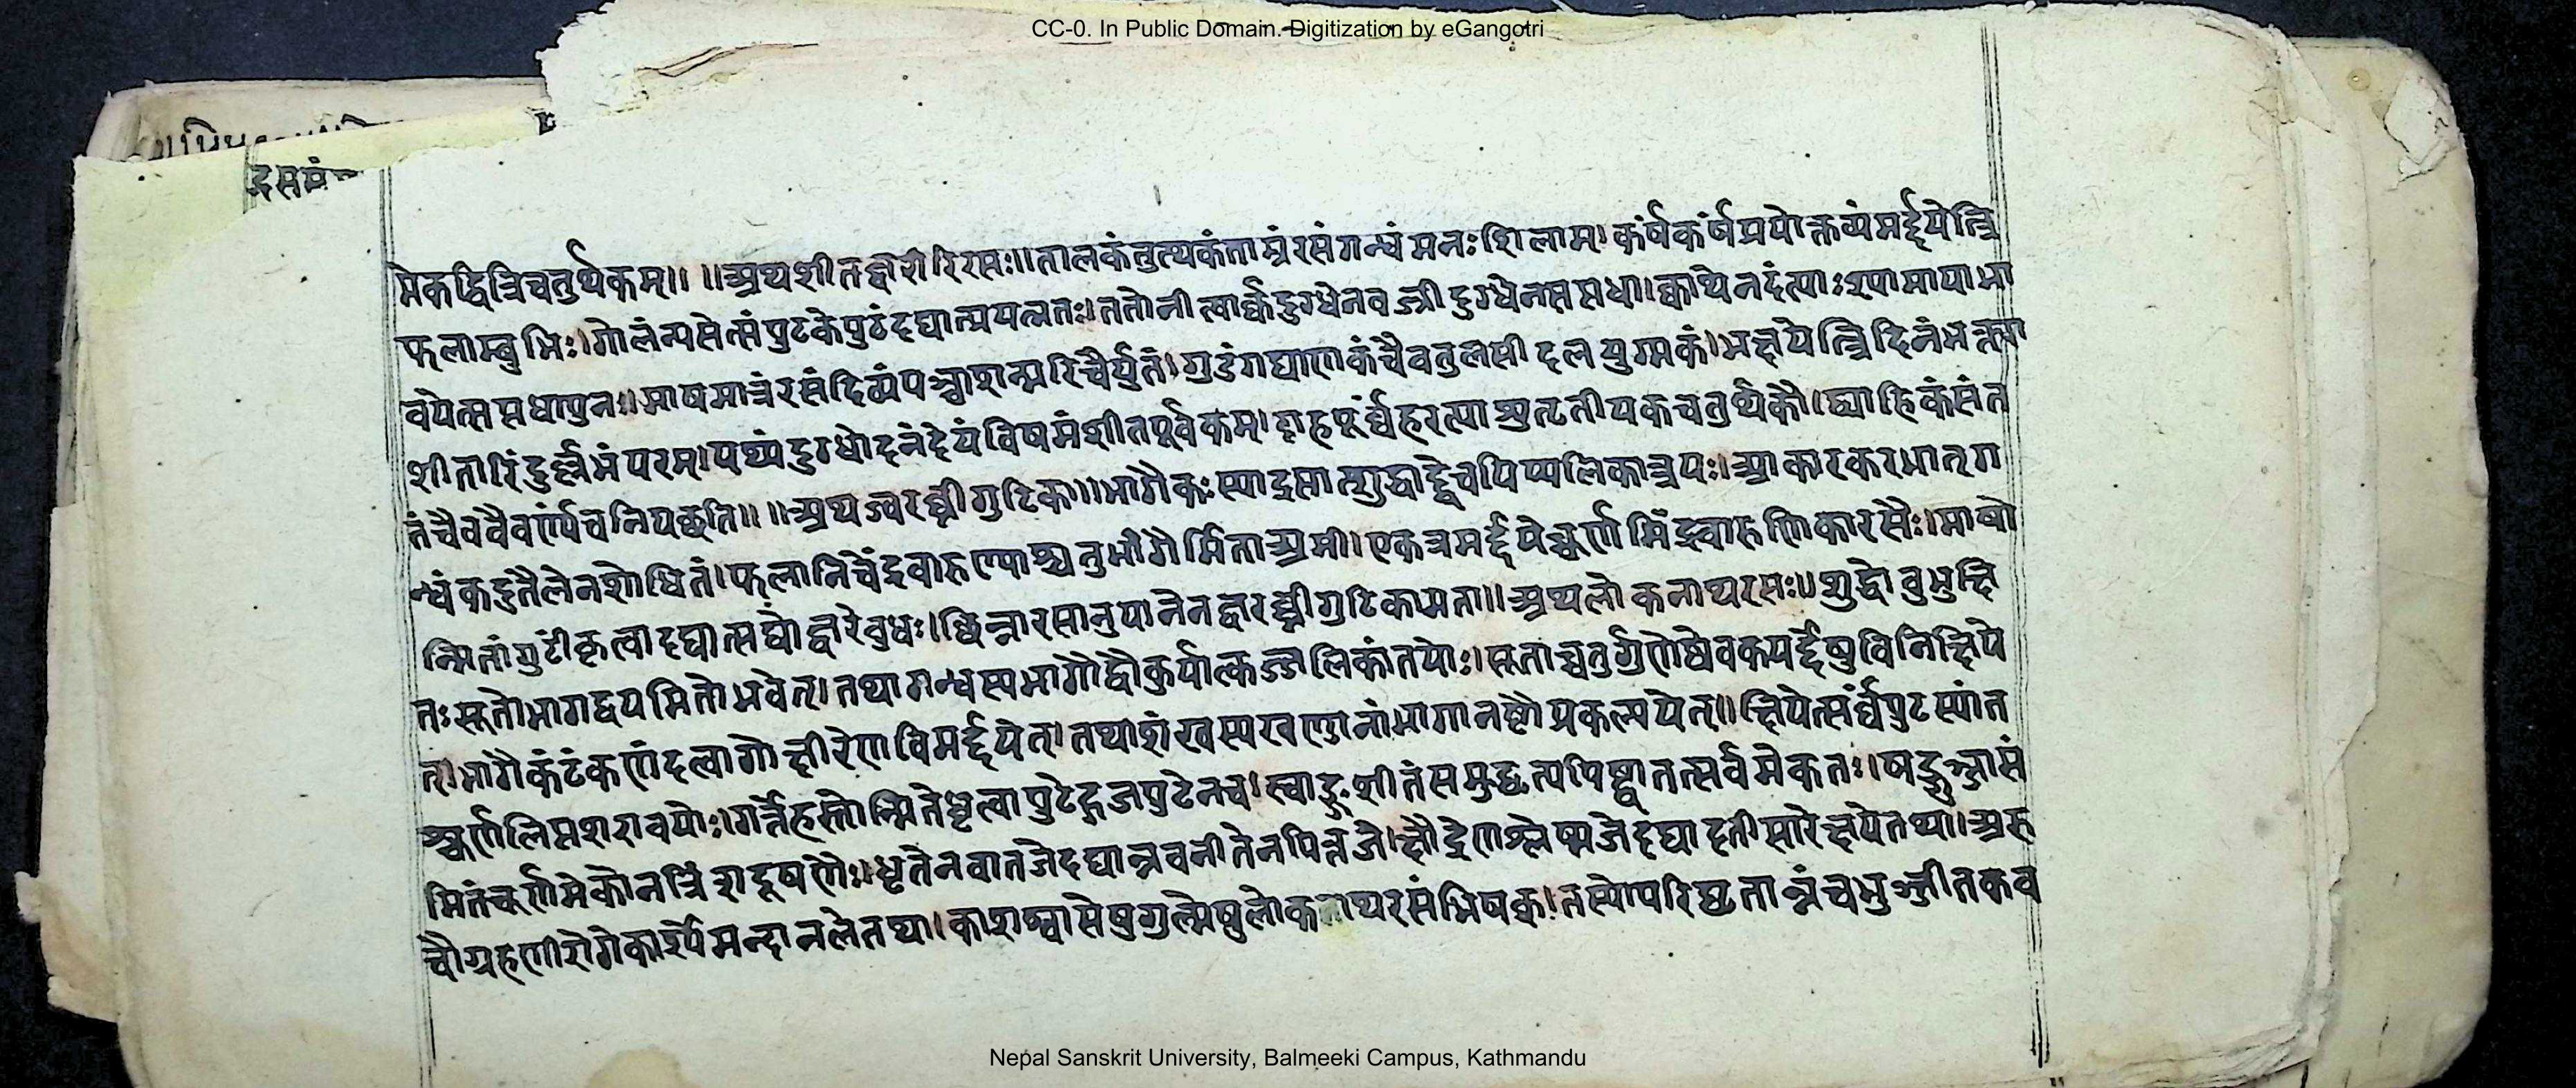 CC-0. In Public Domain. Digitization by eGangotri
द्रसमं
मेकद्वित्रिचतुर्थकम्॥ ॥अथशीतज्वारीरसः॥तालकंतुत्थकंताम्रंरसंगन्धंमनःशिलाम्।कर्षंकर्षंप्रयोक्तव्यंमर्द्दयेत्त्रि
फलाम्बुभिः।गोलंन्यसेत्संपुटकेपुटंदद्यात्प्रयत्नतः।ततोनीत्वार्कदुग्धेनवज्रीदुग्धेनसप्तधा।क्वाथेनदंत्याःश्यामायाभा
वयेत्सप्तधापुनः।माषमात्रंरसंदिव्यंपञ्चाशन्मरिचैर्युतं।गुडंगद्याणकंचैवतुलसीदलयुग्मकं।भक्षयेत्त्रिदिनंभक्त्या
शीतारिंदुर्ल्लभंपरम्।पथ्यंदुग्धोदनंदेयंविषमंशीतपूर्वकम्।दाहपूर्वंहरत्याशुतृतीयकचतुर्थकौ।द्व्याहिकंसंत
तंचैववैवर्ण्यंचनियच्छति॥ ॥अथज्वरघ्नीगुटिका॥भागैकःस्याद्रसात्शुद्धाद्द्वेचपिप्पलिकात्रयः।आकारकरभात्ग
न्धंकटुतैलेनशोधितं।फलानिचेंद्रवारुण्याश्चतुर्भागैर्मिताअमी।एकत्रमर्द्दयेच्चूर्णमिंद्रवारुणिकारसैः।माषो
न्मितांगुटींकृत्वादद्यात्सद्योज्वरेबुधः।छिन्नारसानुपानेनज्वरघ्नीगुटिकामता॥अथलोकनाथरसः॥शुद्धोबुभुक्षि
तःसूतोभागद्वयमितोभवेत्।तथागन्धस्यभागौद्वौकुर्यात्कज्जलिकांतयोः।सूताच्चतुर्गुणेष्वेवकपर्द्देषुविनिक्षिपे
त्।भागैकंटंकणंदत्वागोक्षीरेणविमर्द्दयेत्।तथाशंखस्यखण्डानांभागानष्टौप्रकल्पयेत्॥क्षिपेत्सर्वंपुटस्यांत
श्चूर्णलिप्तशरावयोः।गर्त्तेहस्तोन्मितेधृत्वापुटेद्गजपुटेनच।स्वाङ्गशीतंसमुद्धृत्यपिष्ट्वातत्सर्वमेकतः।षड्गुञ्जासं
मितंचूर्णमेकोनत्रिंशदूषणैः।घृतेनवातजेदद्यान्नवनीतेनपित्तजे।क्षौद्रेणश्लेष्मजेदद्यादतीसारेक्षयेतथा।अरु
चौग्रहणीरोगेकार्श्येमन्दानलेतथा।काशश्वासेषुगुल्मेषुलोकनाथरसंभिषक्।तस्योपरिघृतान्नंचभुञ्जीतकव
Nepal Sanskrit University, Balmeeki Campus, Kathmandu